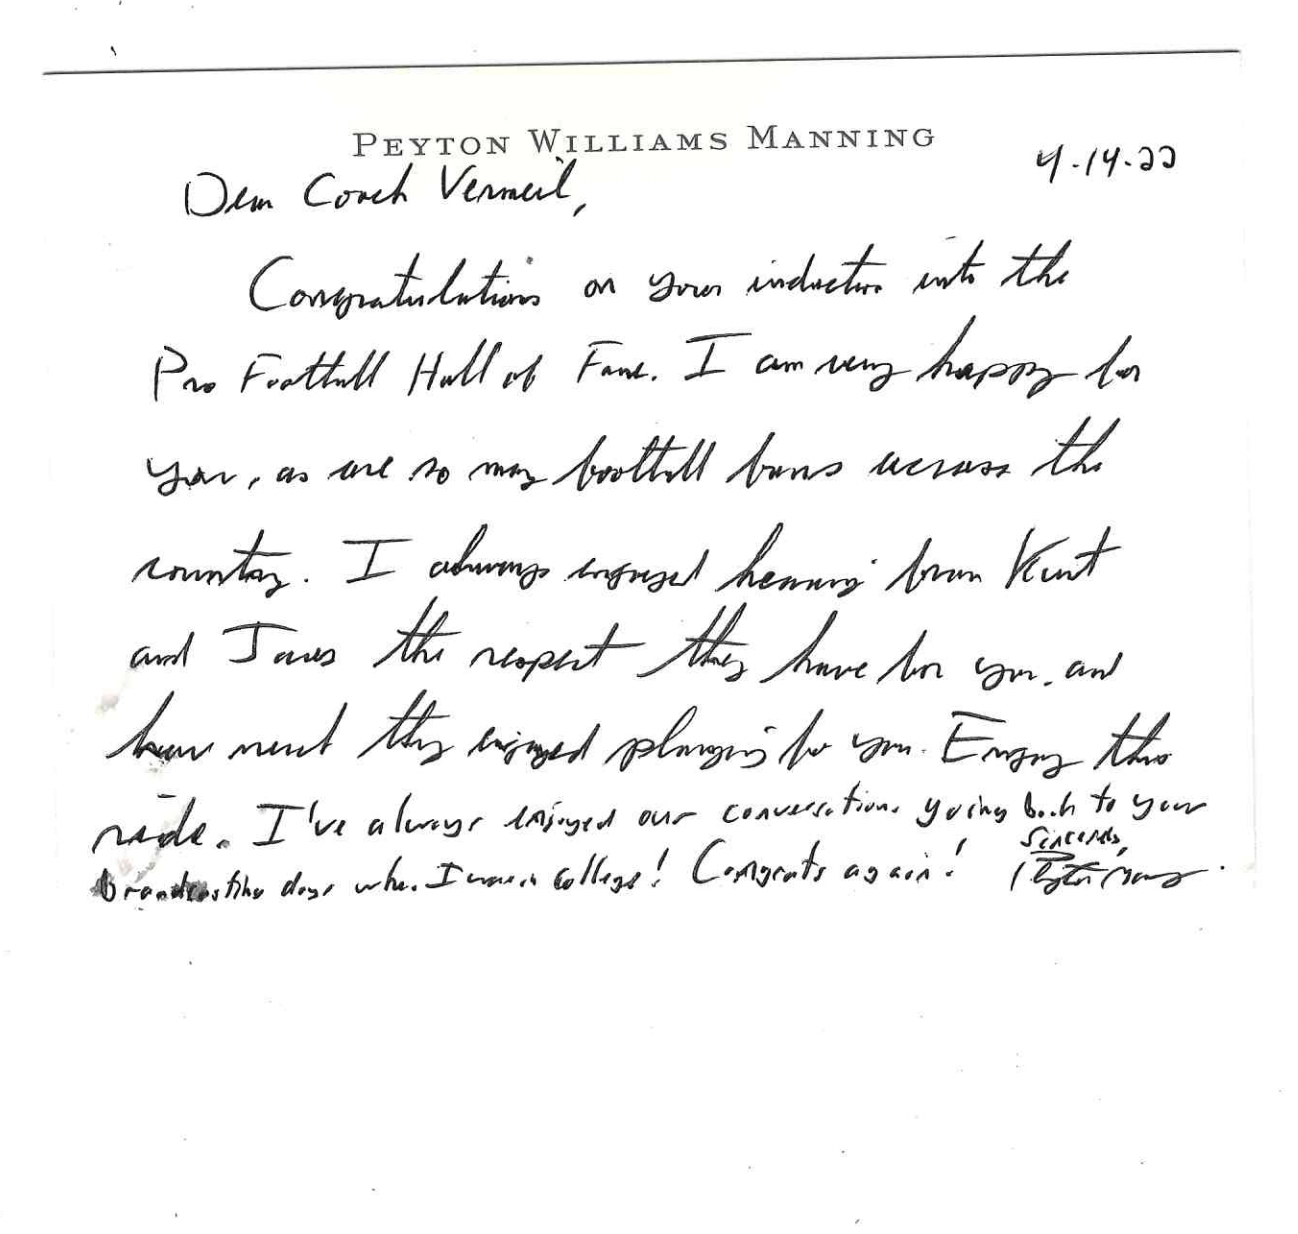 PEYTON WILLIAMS MANNING
4.14.22
Dear Coach Vermeil,
Congratulations on your induction into the
Pro Football Hall of Fame. I am very happy for
you, as are so many football fans across the
country. I always enjoyed hearing from Kurt
and Isaac the respect they have for you, and
how much they enjoyed playing for you. Enjoy this
ride. I've always enjoyed our conversations going back to your
broadcasting days when I was in college! Congrats again!
Sincerely,
Peyton Manning